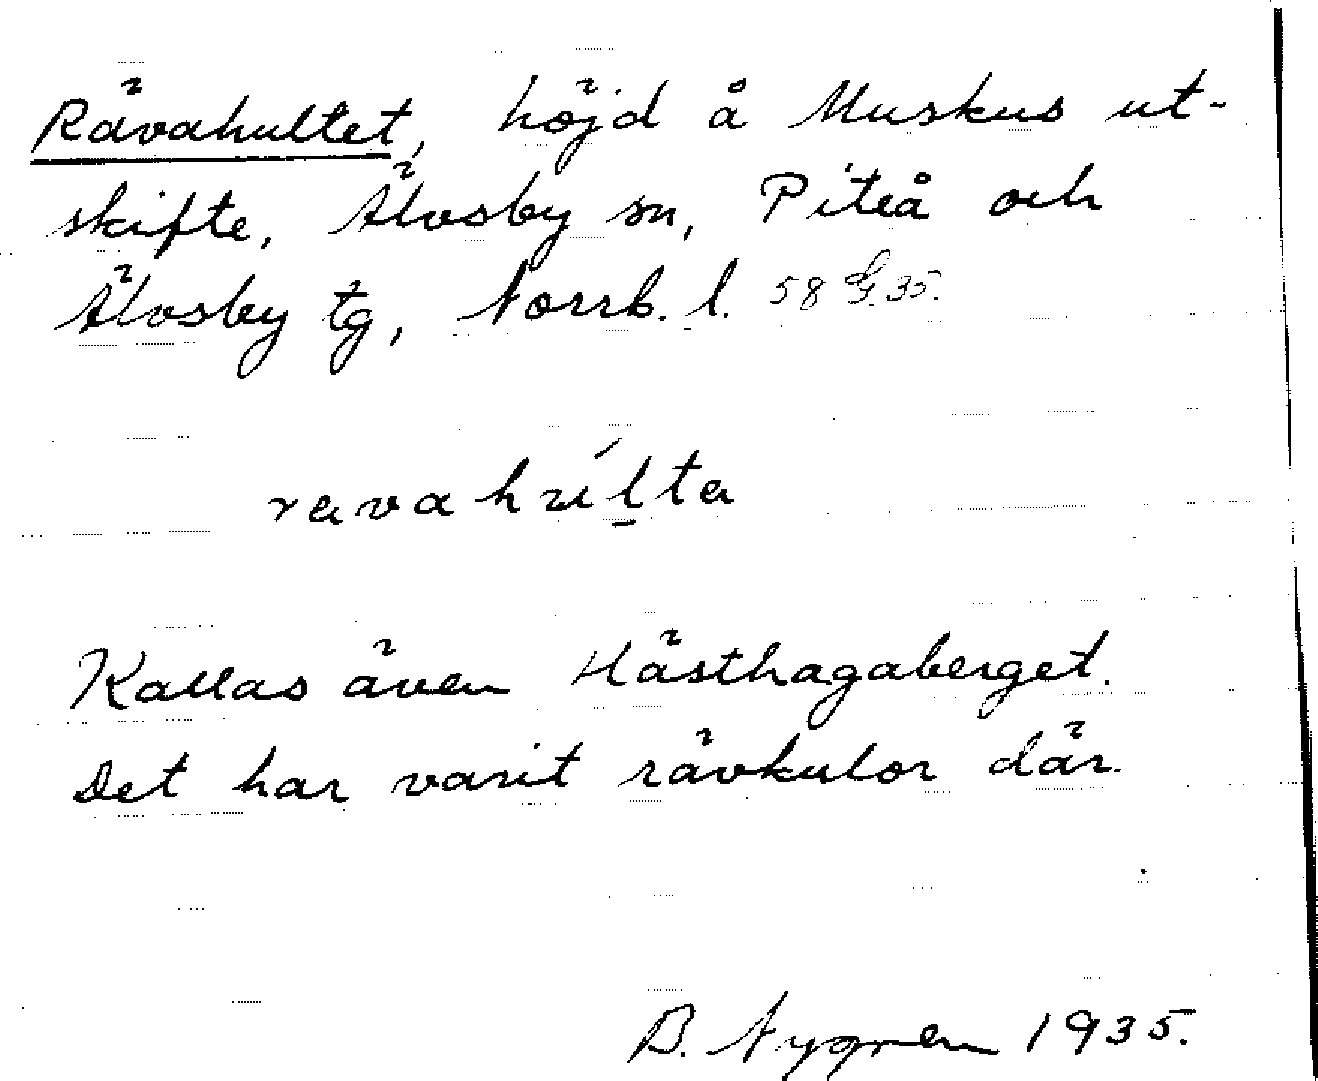 Rävahultet, höjd å Muskus ut-
skifte, Älvsby sn, Piteå och
Älvsby tg, Norrb. l. 58 G. 35.
ravahúlta
Kallas även Hästhagaberget.
Det har varit rävkulor där.
B. Nygren 1935.